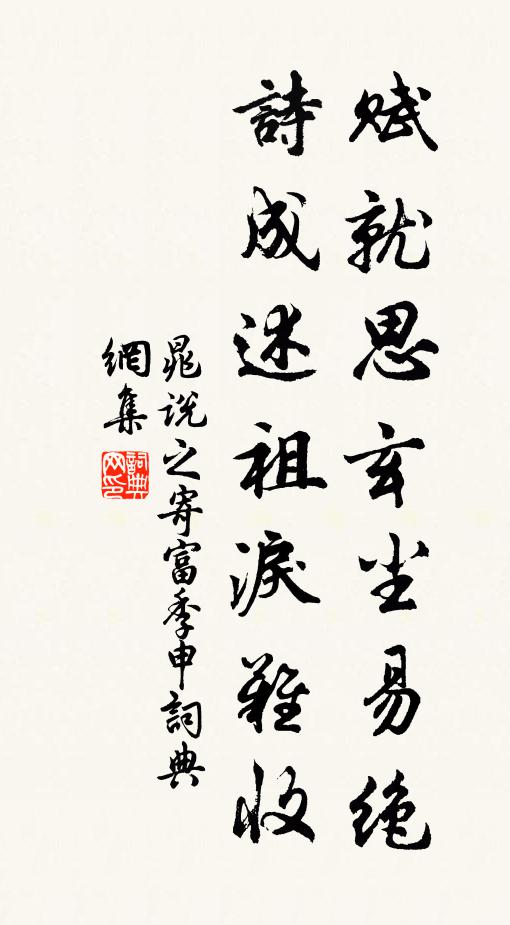 賦就思玄尘易絕
詩成述祖淚難收
晁說之寄富季申詞典
網集
詞典
网印